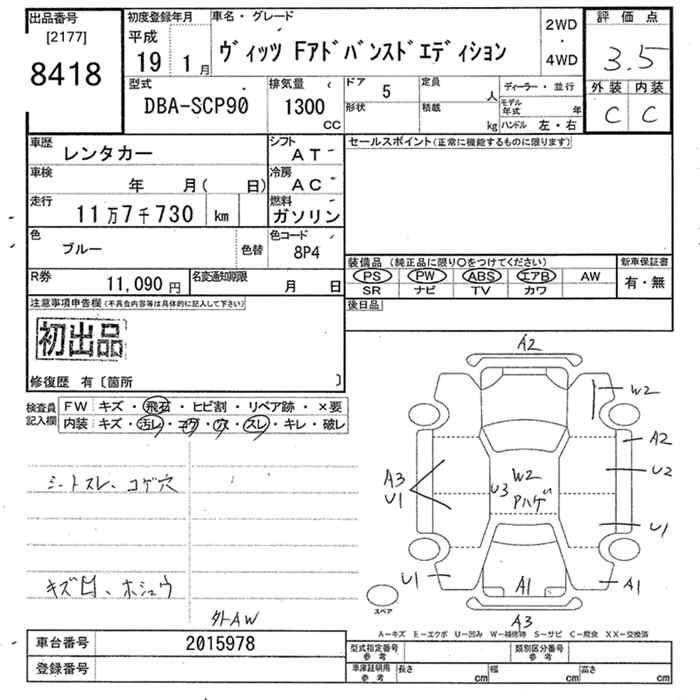 出品番号
[2177]
8418
初度登録年月
平成
19 1月
車名・グレード
ヴィッツ Fアドバンスドエディション
2WD
・
4WD
評価点
3.5
外装 内装
C C
型式
DBA-SCP90
排気量
1300
CC
ドア 5
形状
定員 人
積載 kg
ディーラー・並行
モデル年式 年
ハンドル 左・右
車歴 レンタカー
シフト AT
車検 年 月( 日)
冷房 AC
走行 11万7千730 km
燃料 ガソリン
色 ブルー
色替
色コード 8P4
R券 11,090円
名変通知期限 月 日
セールスポイント(正常に機能するものに限ります)
装備品(純正品に限り○をつけてください)
PS PW ABS エアB AW
SR ナビ TV カワ
新車保証書
有・無
後日品
注意事項申告欄(不具合内容等は具体的に記入して下さい)
初出品
修復歴 有〔箇所 〕
検査員記入欄
FW キズ・飛石・ヒビ割・リペア跡・×要
内装 キズ・汚レ・コゲ・穴・スレ・キレ・破レ
シートスレ、コゲ穴
キズ凹、ホシュウ
外AW
A2
W2
A2
U2
U1
A1
A3
U1
U3
W2
Aハゲ
U1
A1
A3
スペア
A−キズ E−エクボ U−凹み W−補修跡 S−サビ C−腐食 XX−交換済
車台番号 2015978
登録番号
型式指定番号参考
類別区分番号参考
車庫証明用参考
長さ cm
幅 cm
高さ cm